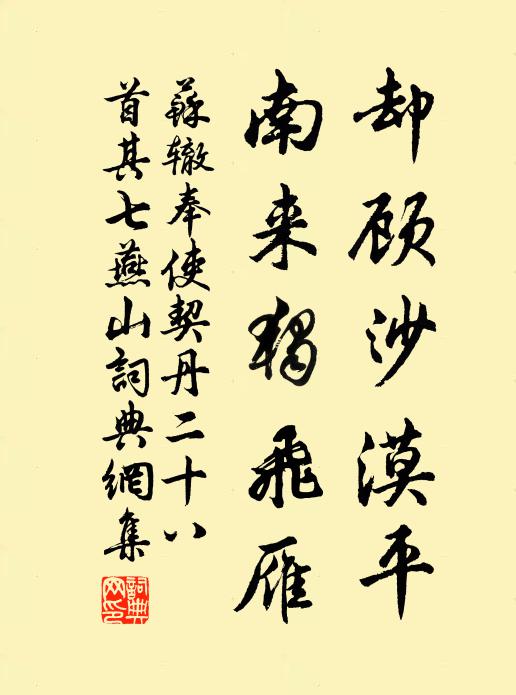 却顾沙漠平
南来独飞雁
蘇辙奉使契丹二十八
首其七燕山詞典網集
詞典网印